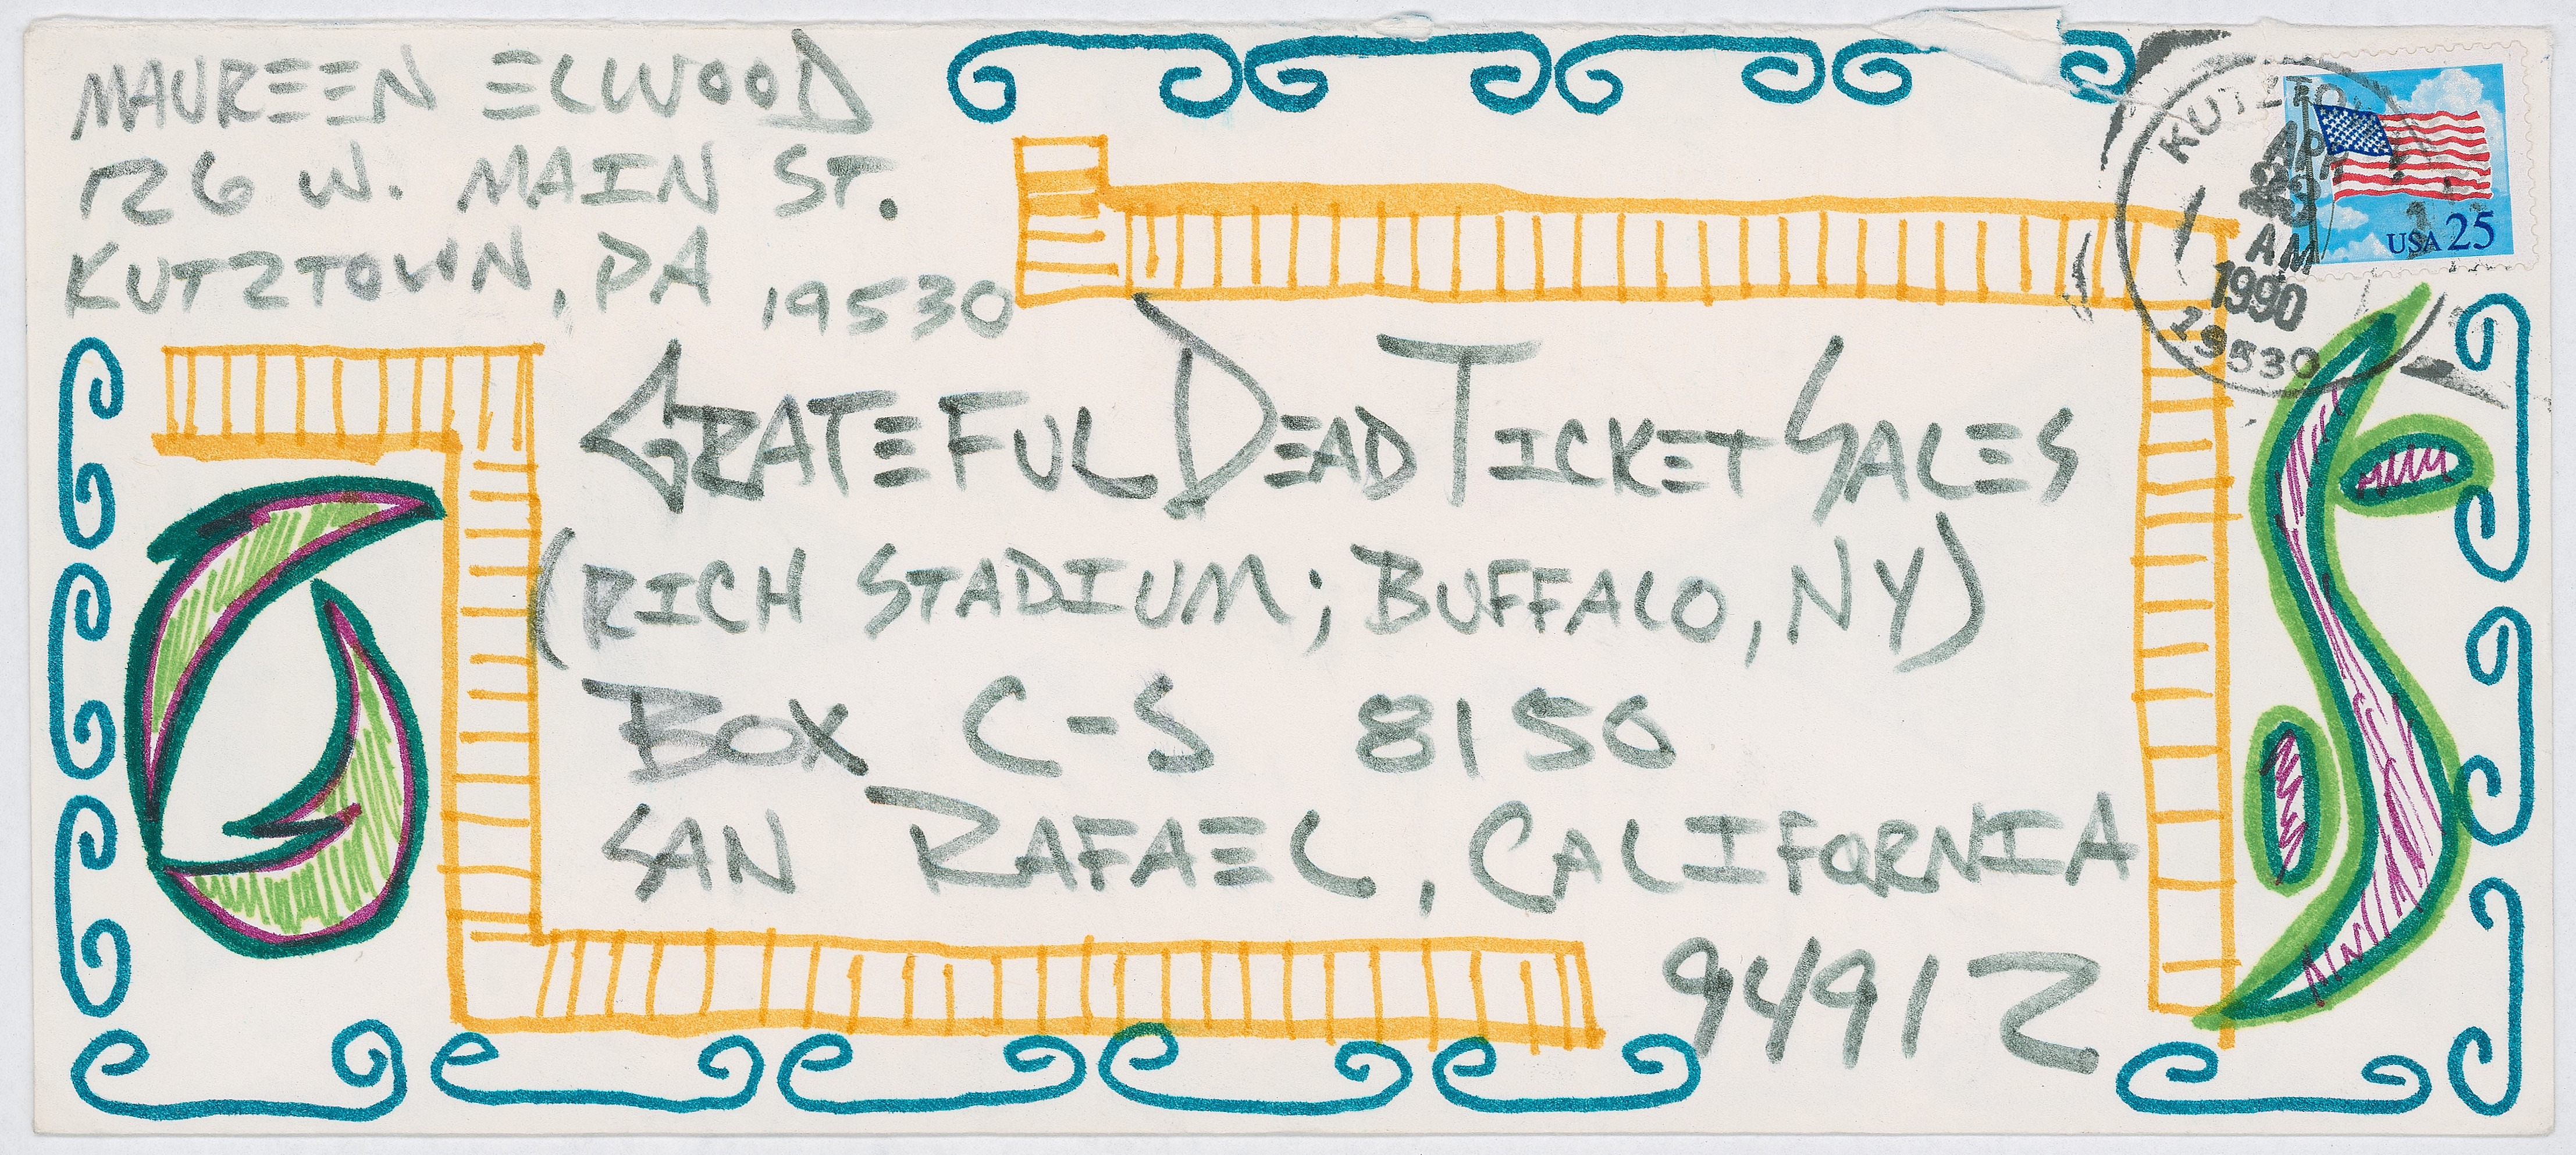 MAUREEN ELWOOD
126 W. MAIN ST.
KUTZTOWN, PA 19530
KUTZTO
APR
AM
1990
19530
USA 25
GRATEFUL DEAD TICKET SALES
(RICH STADIUM; BUFFALO, NY)
BOX C-S 8150
SAN RAFAEL, CALIFORNIA
94912